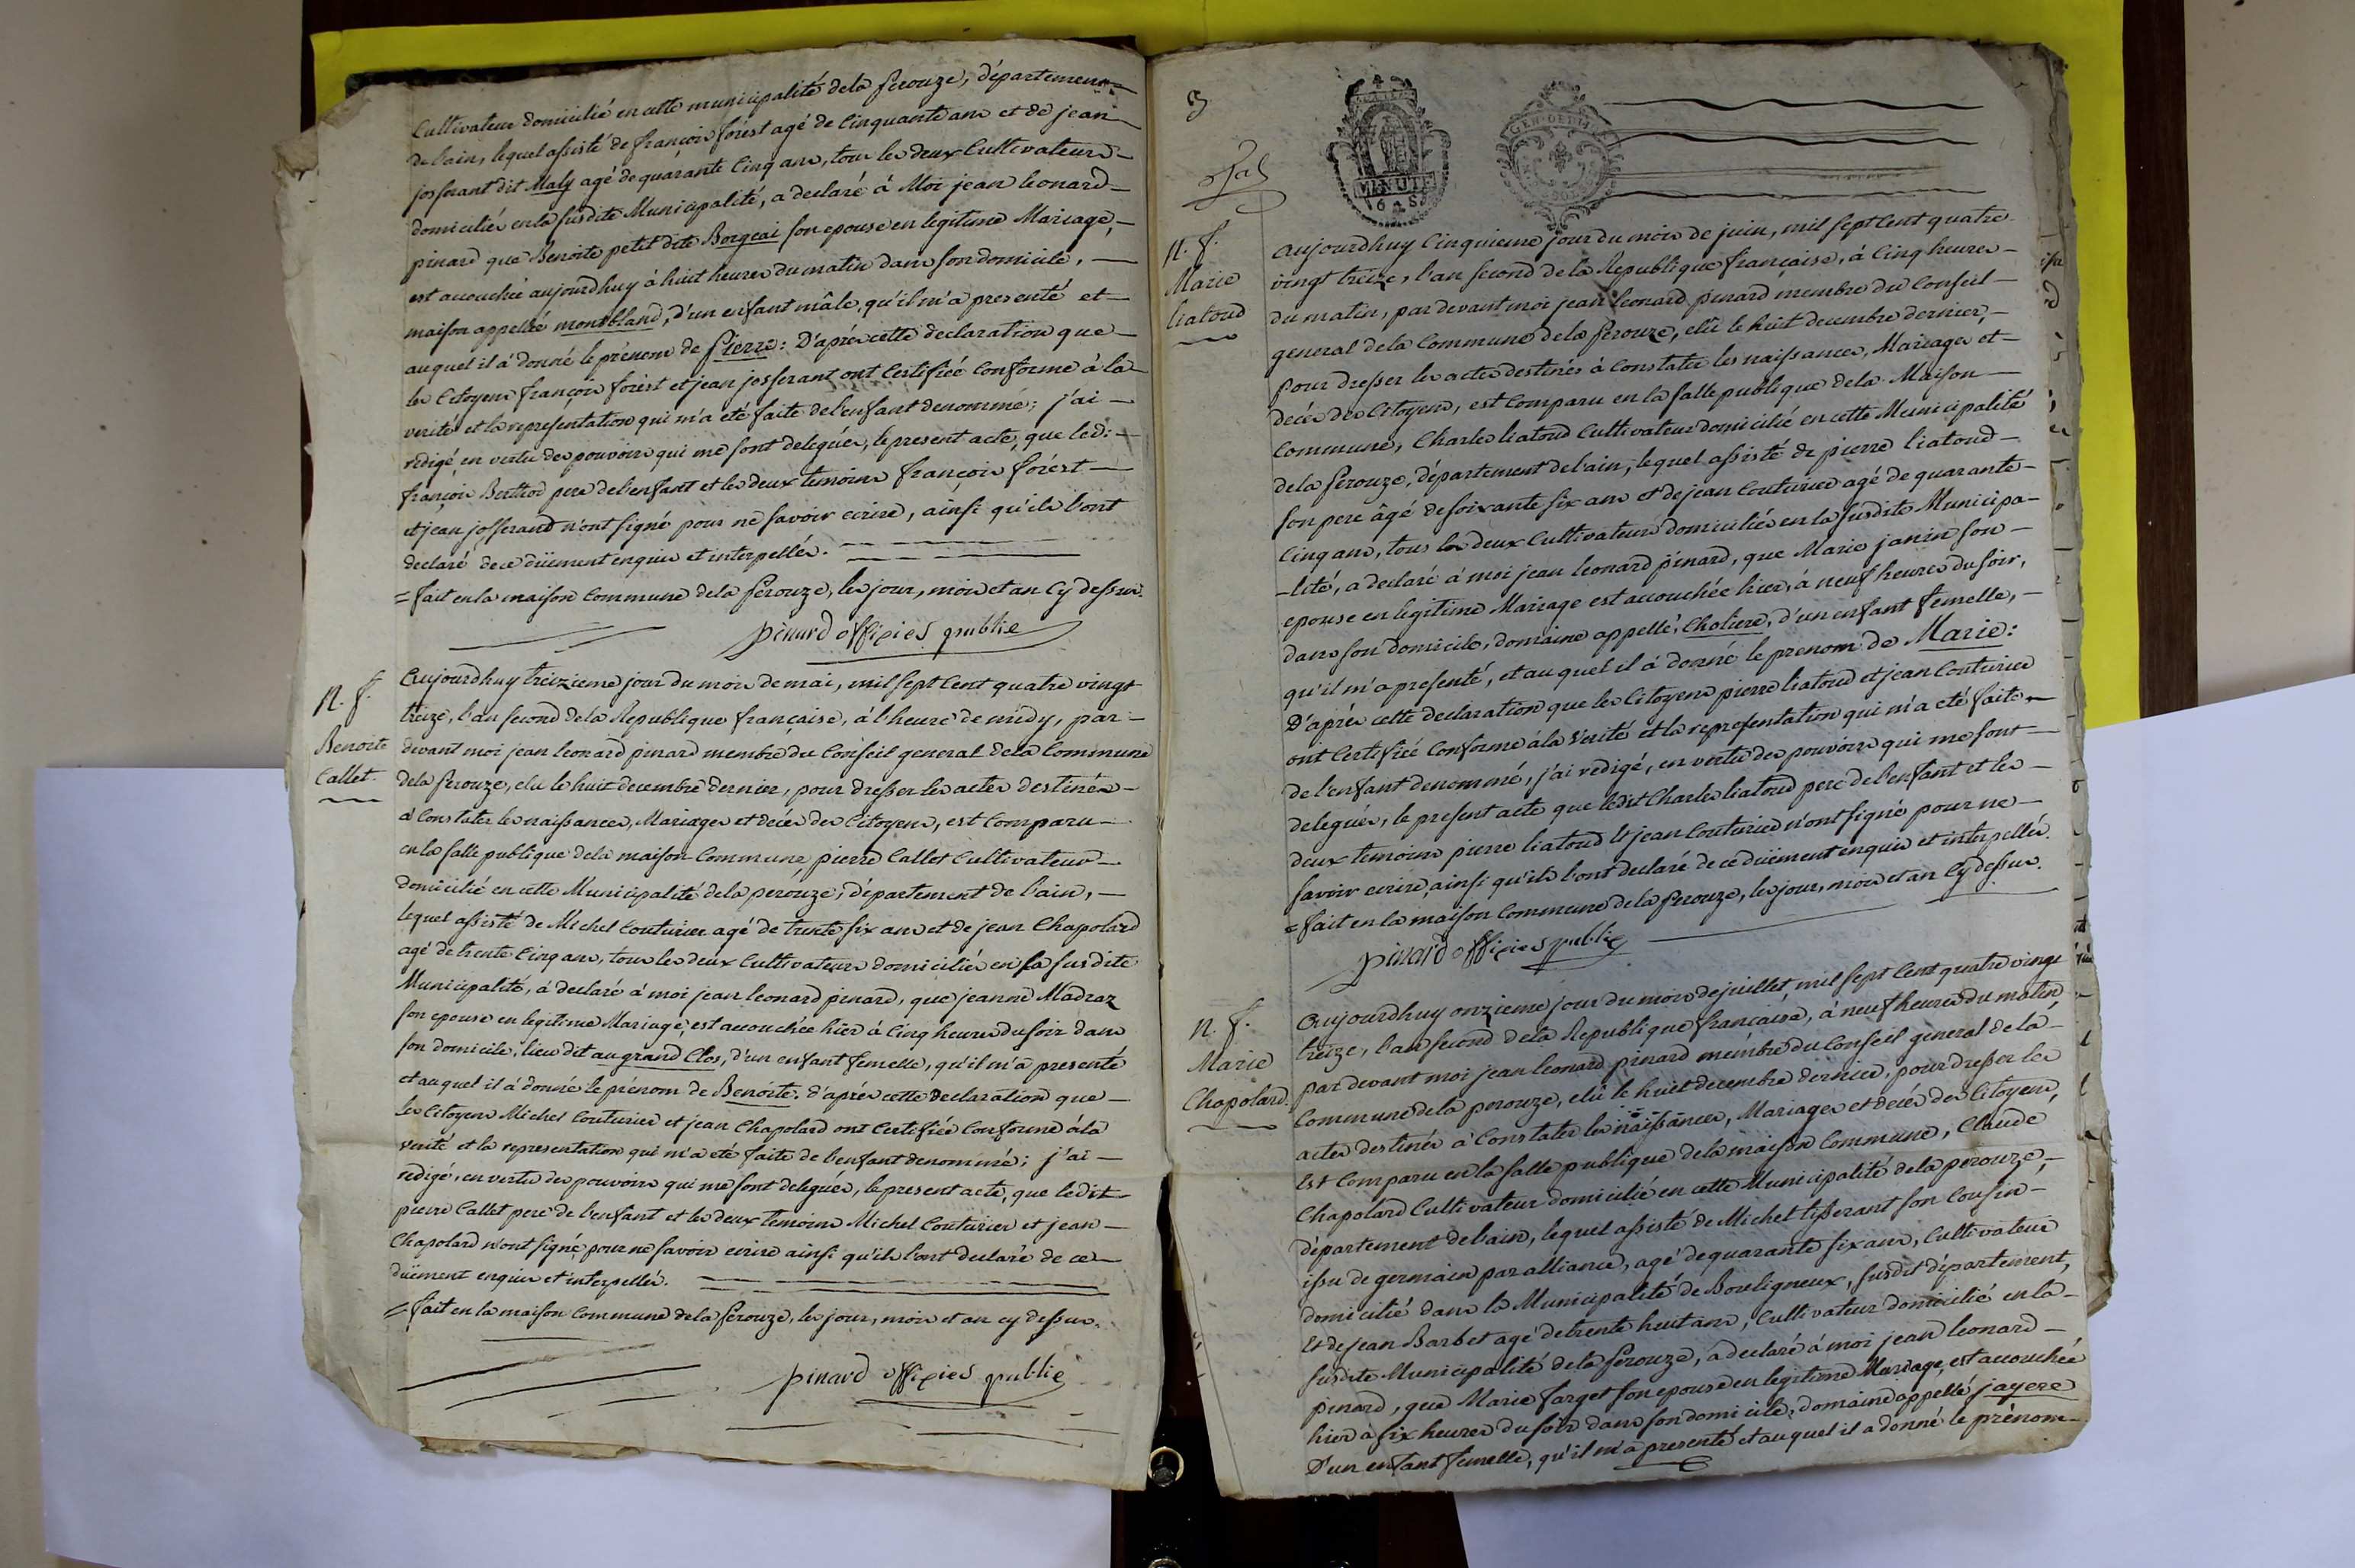 Cultivateur domicilié en cette municipalité dela Perouze, département
de l'ain, lequel assisté de françois forest agé de Cinquante ans et de jean
josserant dit Maly agé de quarante Cinq ans, tous les deux Cultivateurs
domiciliés en la susdite Municipalité, a declaré à Moi jean leonard
pinard que Benoite petit dite Borgeai son epouse en legitime Mariage,
est accouchée aujourdhuy à huit heures du matin dans son domicile,
maison appellée montbland, d'un enfant mâle, qu'il m'a presenté et
auquel il à donné le prénom de Pierre: D'après cette declaration que
les Citoyens françois forest et jean josserant ont Certifiée Conforme à la
verité et la representation qui m'a eté faite de l'enfant denommé; j'ai
redigé, en vertu des pouvoirs qui me sont delegués, le present acte, que ledit
françois Berthod pere de l'enfant et les deux temoins françois forest
et jean josserand n'ont signé pour ne savoir ecrire, ainsi qu'ils l'ont
declaré de ce düement enquis et interpellés.
= fait en la maison Commune dela Perouze, les jour, mois et an Cy dessus.
pinard officier public
N. f.
Benoite
Callet.
Aujourdhuy treizieme jour du mois de mai, mil sept Cent quatre vingt
treize, l'an second dela Republique française, à l'heure de midy, par
devant moi jean leonard pinard membre du Conseil general dela Commune
dela Perouze, elu le huit decembre dernier, pour dresser les actes destinés
à Constater les naissances, Mariages et decés des Citoyens, est Comparu
en la salle publique dela maison Commune, pierre Callet Cultivateur
domicilié en cette Municipalité dela perouze, département de l'ain,
lequel assisté de Michel Couturier agé de trente six ans et de jean Chapolard
agé de trente Cinq ans, tous les deux Cultivateurs domiciliés en la susdite
Municipalité, à declaré à moi jean leonard pinard, que jeanne Madraz
son epouse en legitime Mariage, est accouchée hier à Cinq heures du soir dans
son domicile, lieu dit au grand Clos, d'un enfant femelle, qu'il m'a presenté
et auquel il à donné le prénom de Benoite. d'après cette declaration que
les Citoyens Michel Couturier et jean Chapolard ont Certifiée Conforme à la
verité et la representation qui m'a eté faite de l'enfant denommé; j'ai
redigé, en vertu des pouvoirs qui me sont delegués, le present acte, que ledit
pierre Callet pere de l'enfant et les deux temoins Michel Couturier et jean
Chapolard n'ont signé pour ne savoir ecrire ainsi qu'ils l'ont declaré de ce
düement enquis et interpellés.
= fait en la maison Commune dela Perouze, les jour, mois et an cy dessus.
pinard officier public
3
MINUTE
GEN. DE
N. f.
Marie
liatoud
Aujourdhuy Cinquieme jour du mois de juin, mil sept Cent quatre
vingt treize, l'an second dela Republique française, à Cinq heures
du matin, par devant moi jean leonard pinard membre du Conseil
general dela Commune dela Perouze, elû le huit decembre dernier,
pour dresser les actes destinés à Constater les naissances, Mariages et
decés des Citoyens, est Comparu en la salle publique dela Maison
Commune, Charles liatoud Cultivateur domicilié en cette Municipalité
dela Perouze, département de l'ain, lequel assisté de pierre liatoud
son pere âgé de soixante six ans et de jean Couturier agé de quarante
Cinq ans, tous les deux Cultivateurs domiciliés en la susdite Municipa-
-lité, a declaré à moi jean leonard pinard, que Marie janin son
epouse en legitime Mariage est accouchée hier, à neuf heures du soir,
dans son domicile, domaine appellé, Choliere, d'un enfant femelle,
qu'il m'a presenté, et auquel il à donné le prenom de Marie:
D'après cette declaration que les Citoyens pierre liatoud et jean Couturier
ont Certifiée Conforme à la Verité et la representation qui m'a eté faite
de l'enfant denommé, j'ai redigé, en vertu des pouvoirs qui me sont
delegués, le present acte que ledit Charles liatoud pere de l'enfant et les
deux temoins pierre liatoud et jean Couturier n'ont signé pour ne
savoir ecrire, ainsi qu'ils l'ont declaré de ce düement enquis et interpellés.
= fait en la maison Commune dela Perouze, les jour, mois et an Cy dessus.
pinard officier public
N. f.
Marie
Chapolard.
Aujourdhuy onzieme jour du mois de juillet mil sept Cent quatre vingt
treize, l'an second dela Republique française, à neuf heures du matin
par devant moi jean leonard pinard membre du Conseil general de la
Commune dela perouze, elû le huit decembre dernier, pour dresser les
actes destinés à Constater les naissances, Mariages et decés des Citoyens,
Est Comparu en la salle publique dela maison Commune, Claude
Chapolard Cultivateur domicilié en cette Municipalité dela perouze,
département de l'ain, lequel assisté de Michel tisserant son Cousin
issu de germain par alliance, agé de quarante six ans, Cultivateur
domicilié dans la Municipalité de Bouligneux, susdit département,
Et de jean Barbet agé de trente huit ans, Cultivateur domicilié en la
susdite Municipalité dela Perouze, a declaré à moi jean leonard
pinard, que Marie farget son epouse en legitime Mariage, est accouchée
hier à six heures du soir dans son domicile, domaine appellé jayere
D'un enfant femelle, qu'il m'a presenté et auquel il a donné le prénom